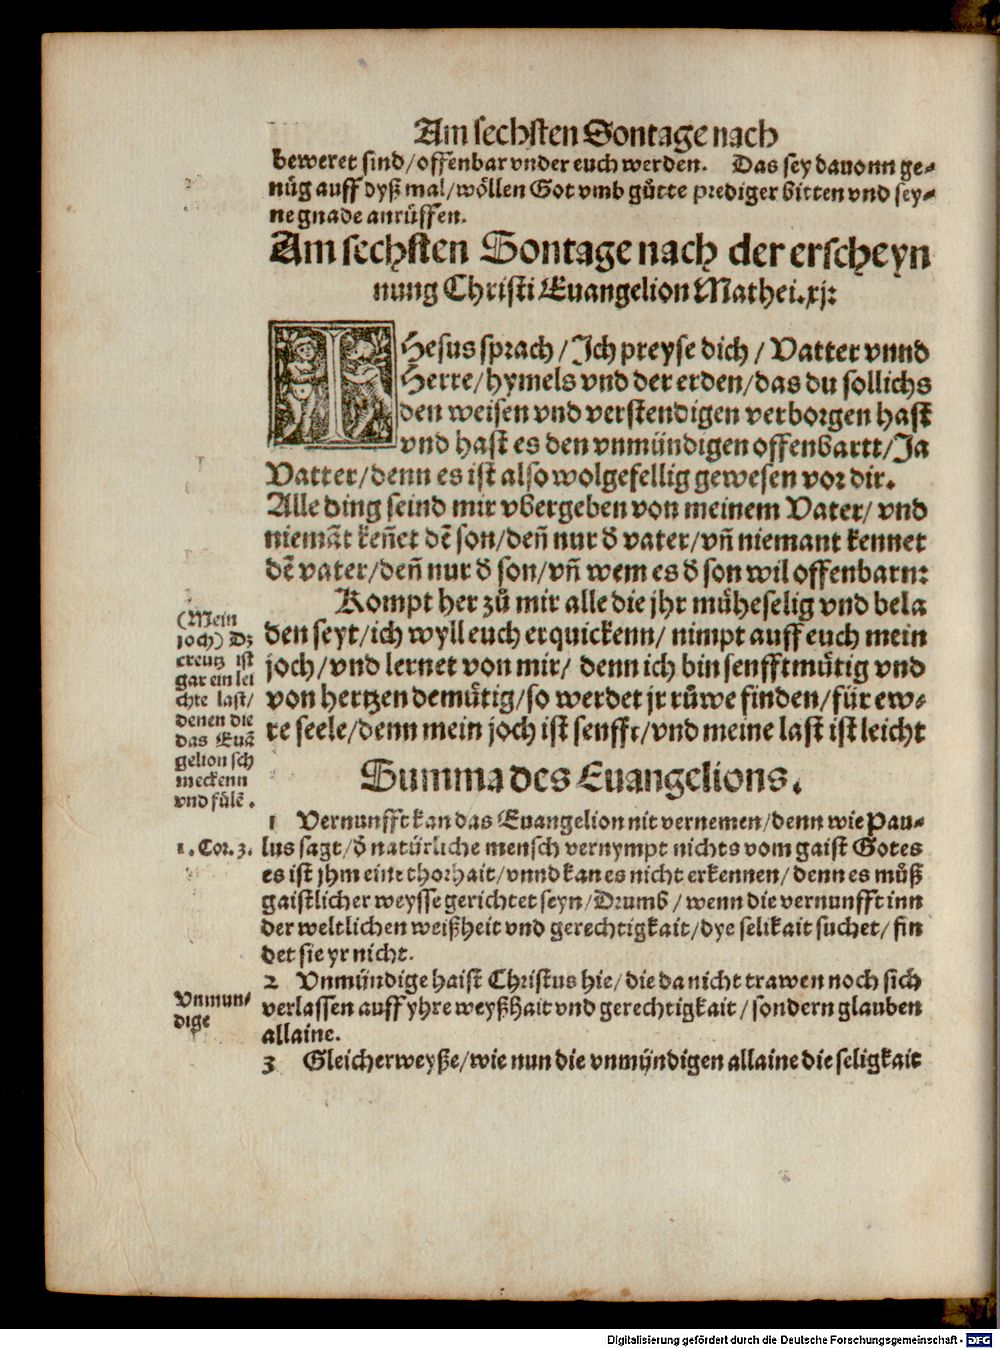 Am sechsten Sontage nach
beweret sind/offenbar vnder euch werden. Das sey dauonn ge⸗
nůg auff dyß mal/wöllen Got vmb gůtte prediger bitten vnd sey⸗
ne gnade anrůffen.
Am sechsten Sontage nach der erscheyn
nung Christi Euangelion Mathei.xj:
IHesus sprach/Jch preyse dich/Vatter vnnd
Herre/hymels vnd der erden/das du sollichs
den weisen vnd verstendigen verborgen hast
vnd hast es den vnmündigen offenbartt/Ja
Vatter/denn es ist also wolgefellig gewesen vor dir.
Alle ding seind mir vbergeben von meinem Vater/vnd
niemãt keñet dẽ son/deñ nur đ vater/vñ niemant kennet
dẽ vater/deñ nur đ son/vñ wem es đ son wil offenbarn:
Kompt her zů mir alle die jhr můheselig vnd bela
den seyt/ich wyll euch erquickenn/nimpt auff euch mein
joch/vnd lernet von mir/denn ich bin senfftmůtig vnd
von hertzen demůtig/so werdet jr růwe finden/für ew⸗
re seele/denn mein joch ist senfft/vnd meine last ist leicht
(Mein
joch) Dz
creutz ist
gar ein lei
chte last/
denen die
das Euã
gelion sch
meckenn
vnd fülẽ.
Summa des Euangelions.
1 Vernunfft kan das Euangelion nit vernemen/denn wie Pau⸗
1.Cor.3.
lus sagt/đ natürliche mensch vernympt nichts vom gaist Gotes
es ist jhm eine thorhait/vnnd kan es nicht erkennen/denn es můß
gaistlicher weysse gerichtet seyn/Drumb/wenn die vernunfft inn
der weltlichen weißheit vnd gerechtigkait/dye selikait suchet/fin
det sie yr nicht.
2 Vnmündige haist Christus hie/die da nicht trawen noch sich
Vnmun/
dige
verlassen auff yhre weyßhait vnd gerechtigkait/sondern glauben
allaine.
3 Gleicherweyße/wie nun die vnmündigen allaine die seligkait
Digitalisierung gefördert durch die Deutsche Forschungsgemeinschaft - DFG